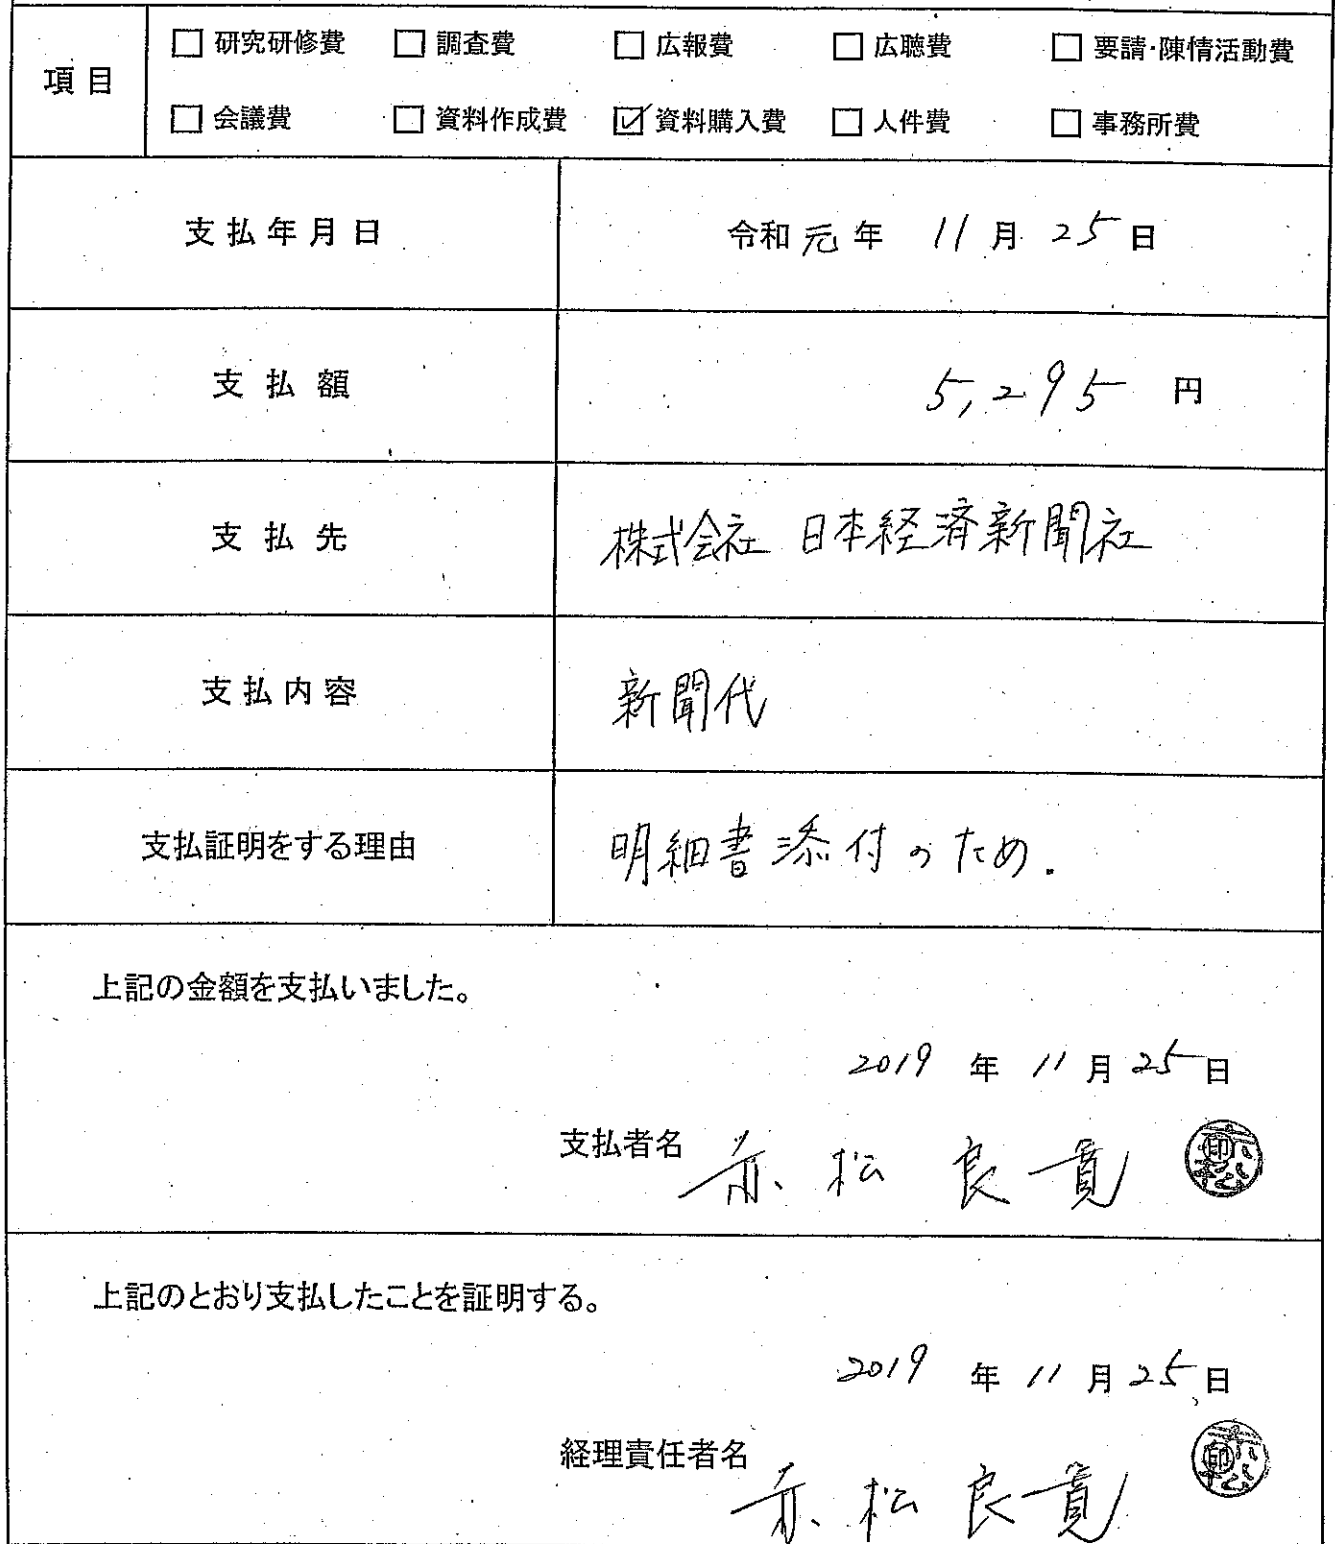 項目
□ 研究研修費 □ 調査費 □ 広報費 □ 広聴費 □ 要請・陳情活動費
□ 会議費 □ 資料作成費 ☑ 資料購入費 □ 人件費 □ 事務所費
支払年月日 令和元年 11月 25日
支払額 5,295 円
支払先 株式会社 日本経済新聞社
支払内容 新聞代
支払証明をする理由 明細書添付のため.
上記の金額を支払いました。
2019 年 11 月 25 日
支払者名 赤松 良寛
上記のとおり支払したことを証明する。
2019 年 11 月 25 日
経理責任者名 赤松 良寛